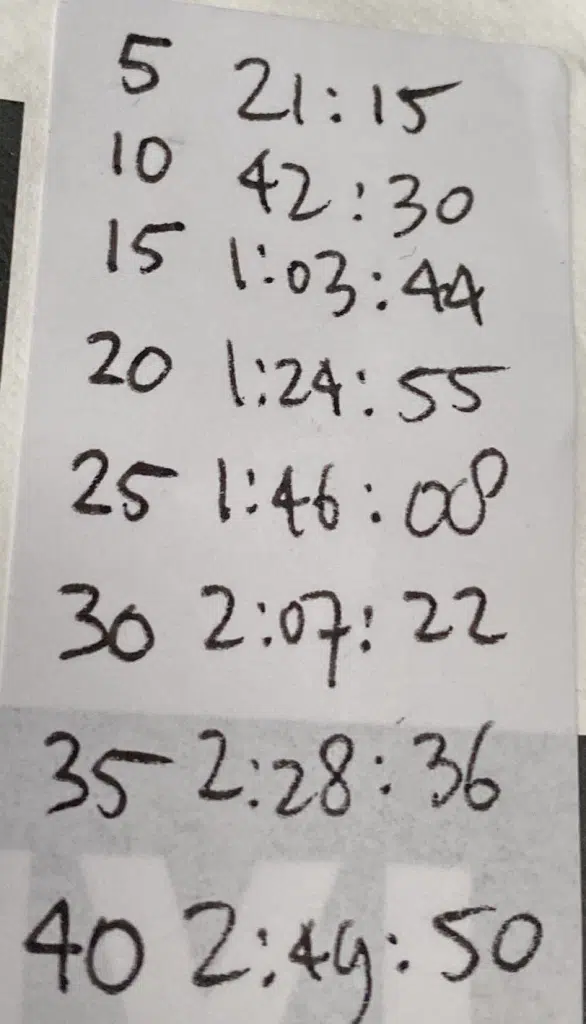 5 21:15
10 42:30
15 1:03:44
20 1:24:55
25 1:46:08
30 2:07:22
35 2:28:36
40 2:49:50